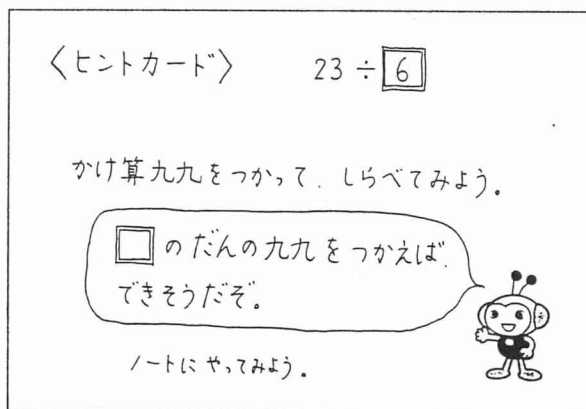 〈ヒントカード〉 23 ÷ 6
かけ算九九をつかって、しらべてみよう。
□のだんの九九をつかえば、
できそうだぞ。
ノートにやってみよう。